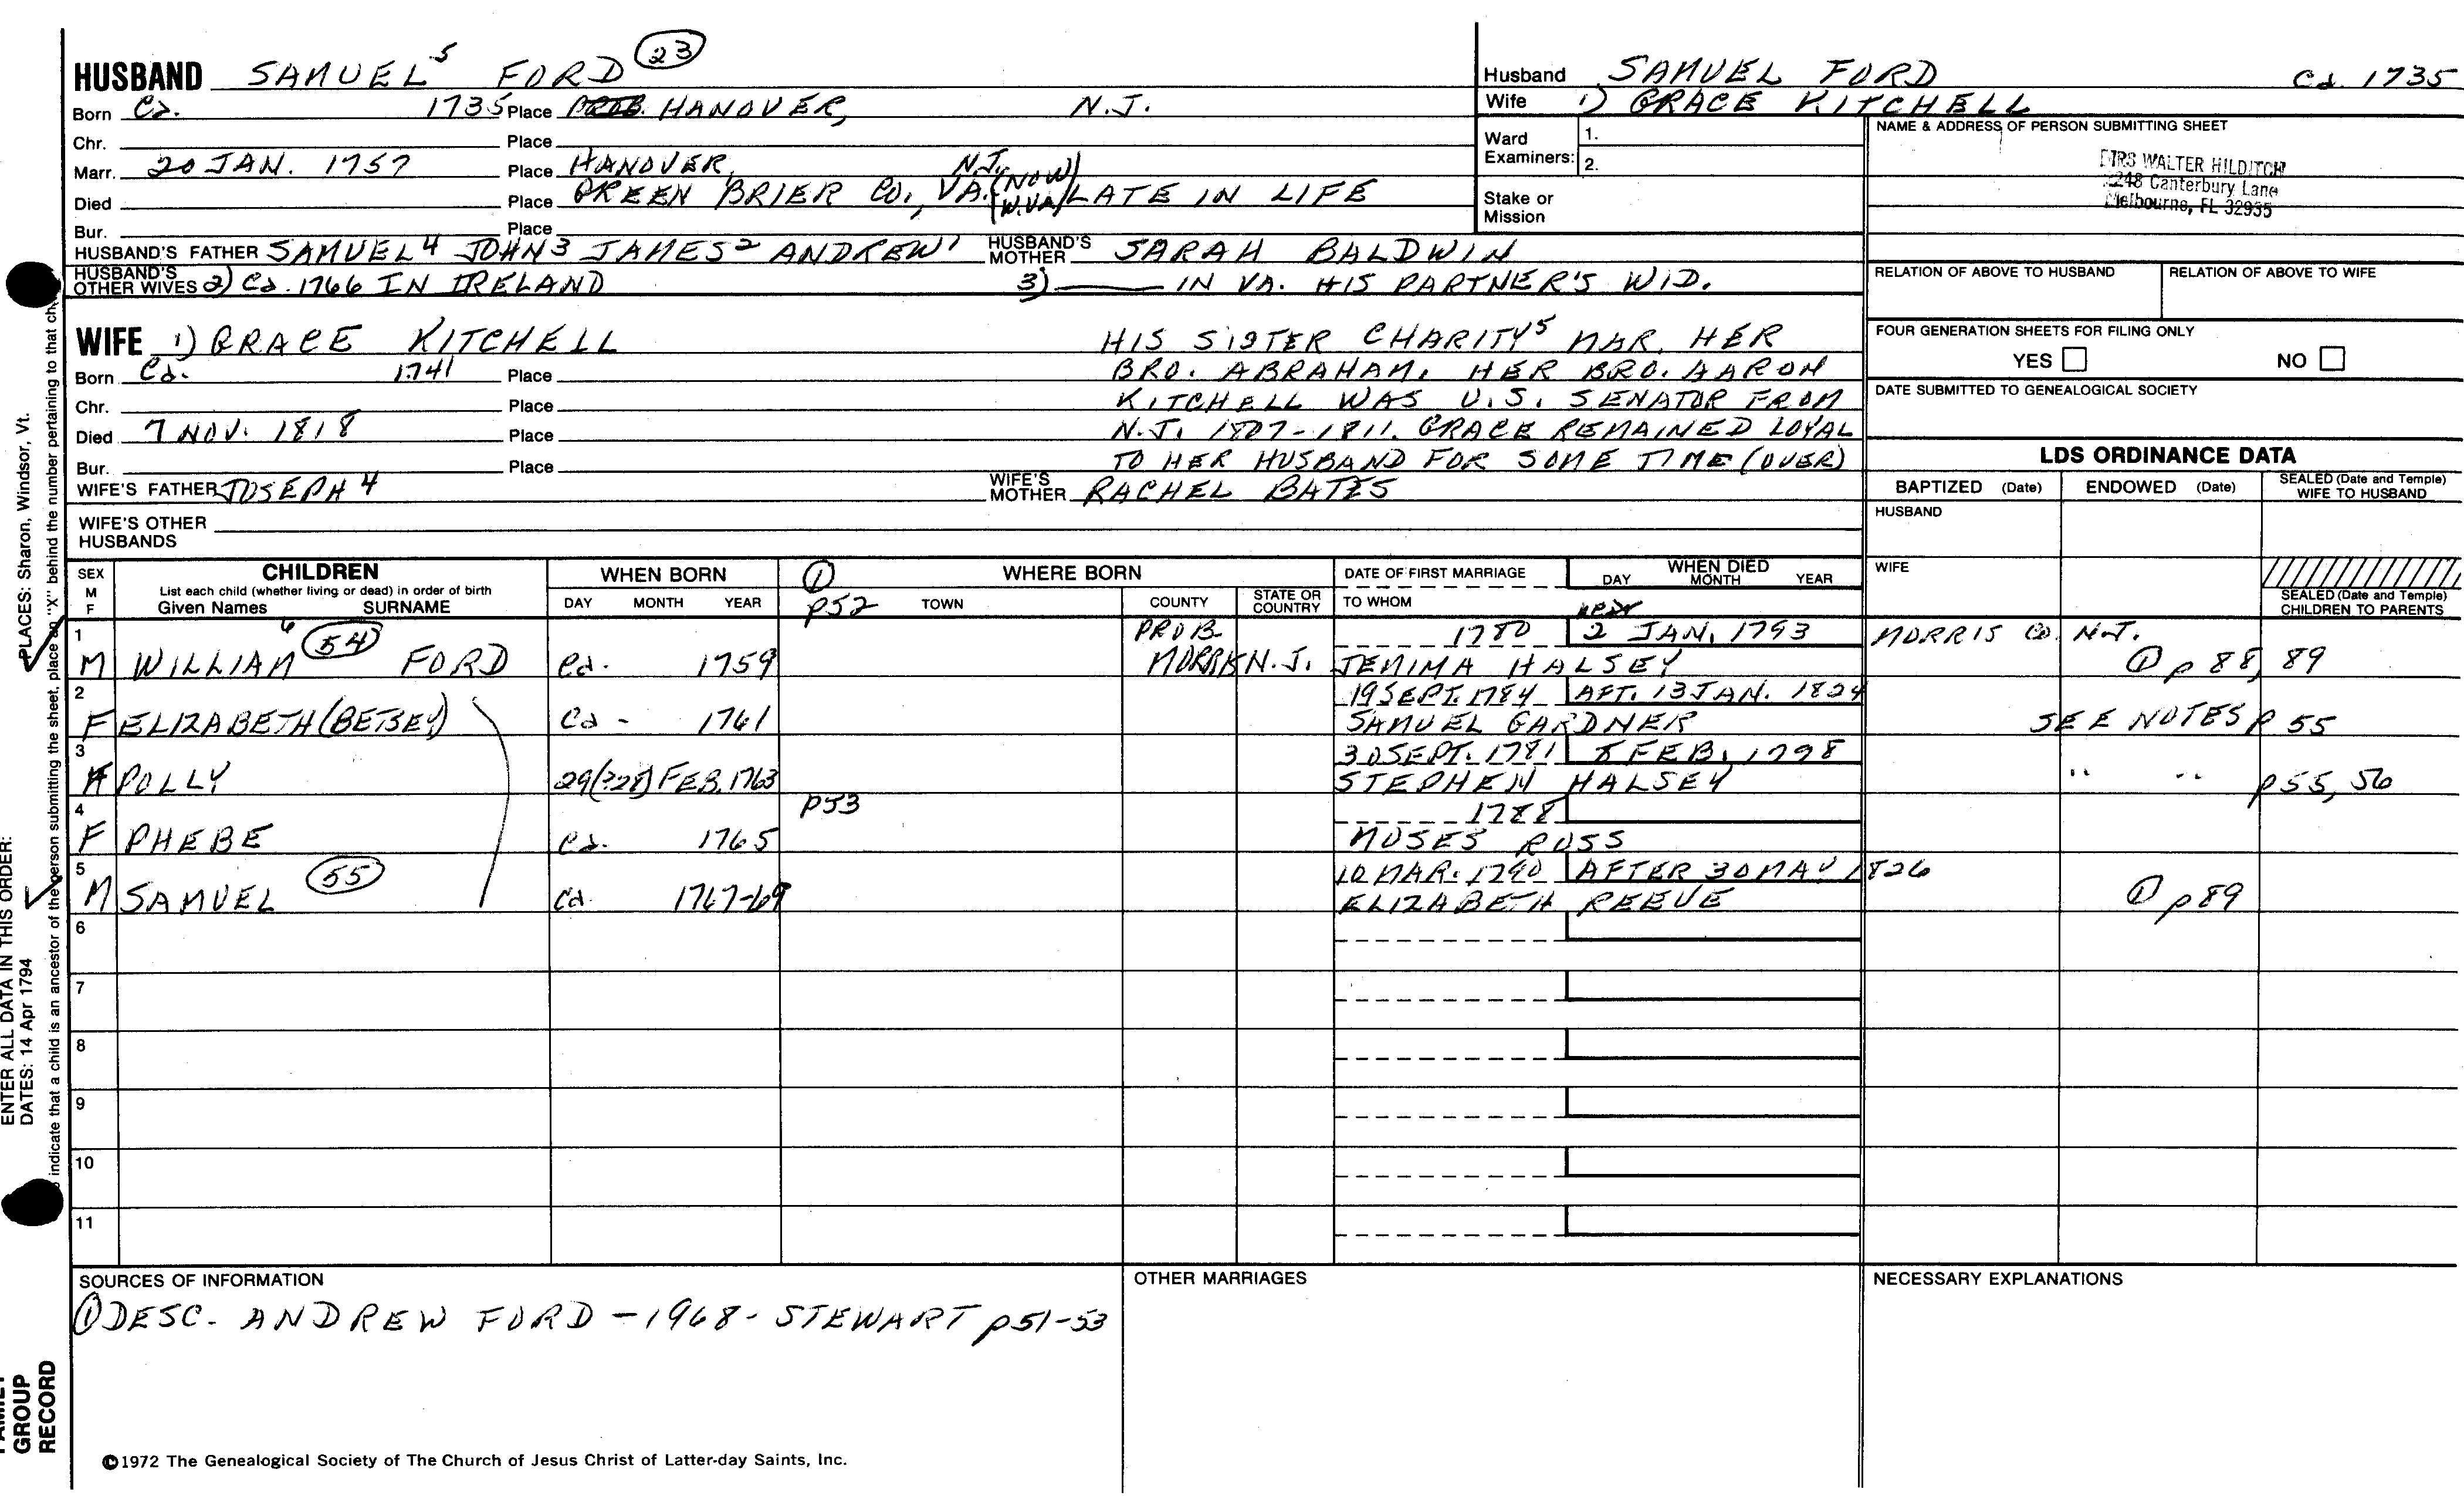 HUSBAND SAMUEL⁵ FORD (23)
Born Ca. 1735 Place PROB. HANOVER, N.J.
Chr. Place
Marr. 20 JAN. 1757 Place HANOVER, N.J.
Died Place GREEN BRIER CO., VA. (NOW W.VA) LATE IN LIFE
Bur. Place
HUSBAND'S FATHER SAMUEL⁴ JOHN³ JAMES² ANDREW¹ HUSBAND'S MOTHER SARAH BALDWIN
HUSBAND'S OTHER WIVES 2) Ca. 1766 IN IRELAND 3) —— IN VA. HIS PARTNER'S WID.
WIFE 1) GRACE KITCHELL
Born Ca. 1741 Place
Chr. Place
Died 7 NOV. 1818 Place
Bur. Place
HIS SISTER CHARITY⁵ MAR. HER
BRO. ABRAHAM. HER BRO. AARON
KITCHELL WAS U.S. SENATOR FROM
N.J. 1807-1811. GRACE REMAINED LOYAL
TO HER HUSBAND FOR SOME TIME (OVER)
WIFE'S FATHER JOSEPH⁴ WIFE'S MOTHER RACHEL BATES
WIFE'S OTHER HUSBANDS
Husband SAMUEL FORD Ca. 1735
Wife 1) GRACE KITCHELL
Ward Examiners: 1.
2.
Stake or Mission
NAME & ADDRESS OF PERSON SUBMITTING SHEET
MRS WALTER HILDITCH
Canterbury Lane
Melbourne, FL 32935
RELATION OF ABOVE TO HUSBAND RELATION OF ABOVE TO WIFE
FOUR GENERATION SHEETS FOR FILING ONLY
YES NO
DATE SUBMITTED TO GENEALOGICAL SOCIETY
LDS ORDINANCE DATA
BAPTIZED (Date) ENDOWED (Date) SEALED (Date and Temple) WIFE TO HUSBAND
HUSBAND
WIFE
SEALED (Date and Temple) CHILDREN TO PARENTS
SEX M F
CHILDREN
List each child (whether living or dead) in order of birth
Given Names SURNAME
WHEN BORN
DAY MONTH YEAR
① p52
WHERE BORN
TOWN COUNTY STATE OR COUNTRY
DATE OF FIRST MARRIAGE
TO WHOM
WHEN DIED
DAY MONTH YEAR
1 PROB. 1780 2 JAN. 1793 MORRIS CO. N.J.
M WILLIAM⁶ (54) FORD Ca. 1759 MORRIS N.J. JEMIMA HALSEY ① p 88, 89
2 19 SEPT. 1784 AFT. 13 JAN. 1824
F ELIZABETH (BETSEY) Ca - 1761 SAMUEL GARDNER SEE NOTES p 55
3 30 SEPT. 1781 8 FEB. 1798
F POLLY 29(?28) FEB. 1763 STEPHEN HALSEY " " p55, 56
4 p53 1788
F PHEBE Ca. 1765 MOSES ROSS
5 10 MAR. 1790 AFTER 30 MAY 1826
M SAMUEL (55) Ca. 1767-69 ELIZABETH REEVE ① p89
6
7
8
9
10
11
SOURCES OF INFORMATION
① DESC. ANDREW FORD - 1968 - STEWART p51-53
OTHER MARRIAGES
NECESSARY EXPLANATIONS
©1972 The Genealogical Society of The Church of Jesus Christ of Latter-day Saints, Inc.
GROUP
RECORD
ENTER ALL DATA IN THIS ORDER:
DATES: 14 Apr 1794
PLACES: Sharon, Windsor, Vt.
indicate that a child is an ancestor of the person submitting the sheet, place an "X" behind the number pertaining to that